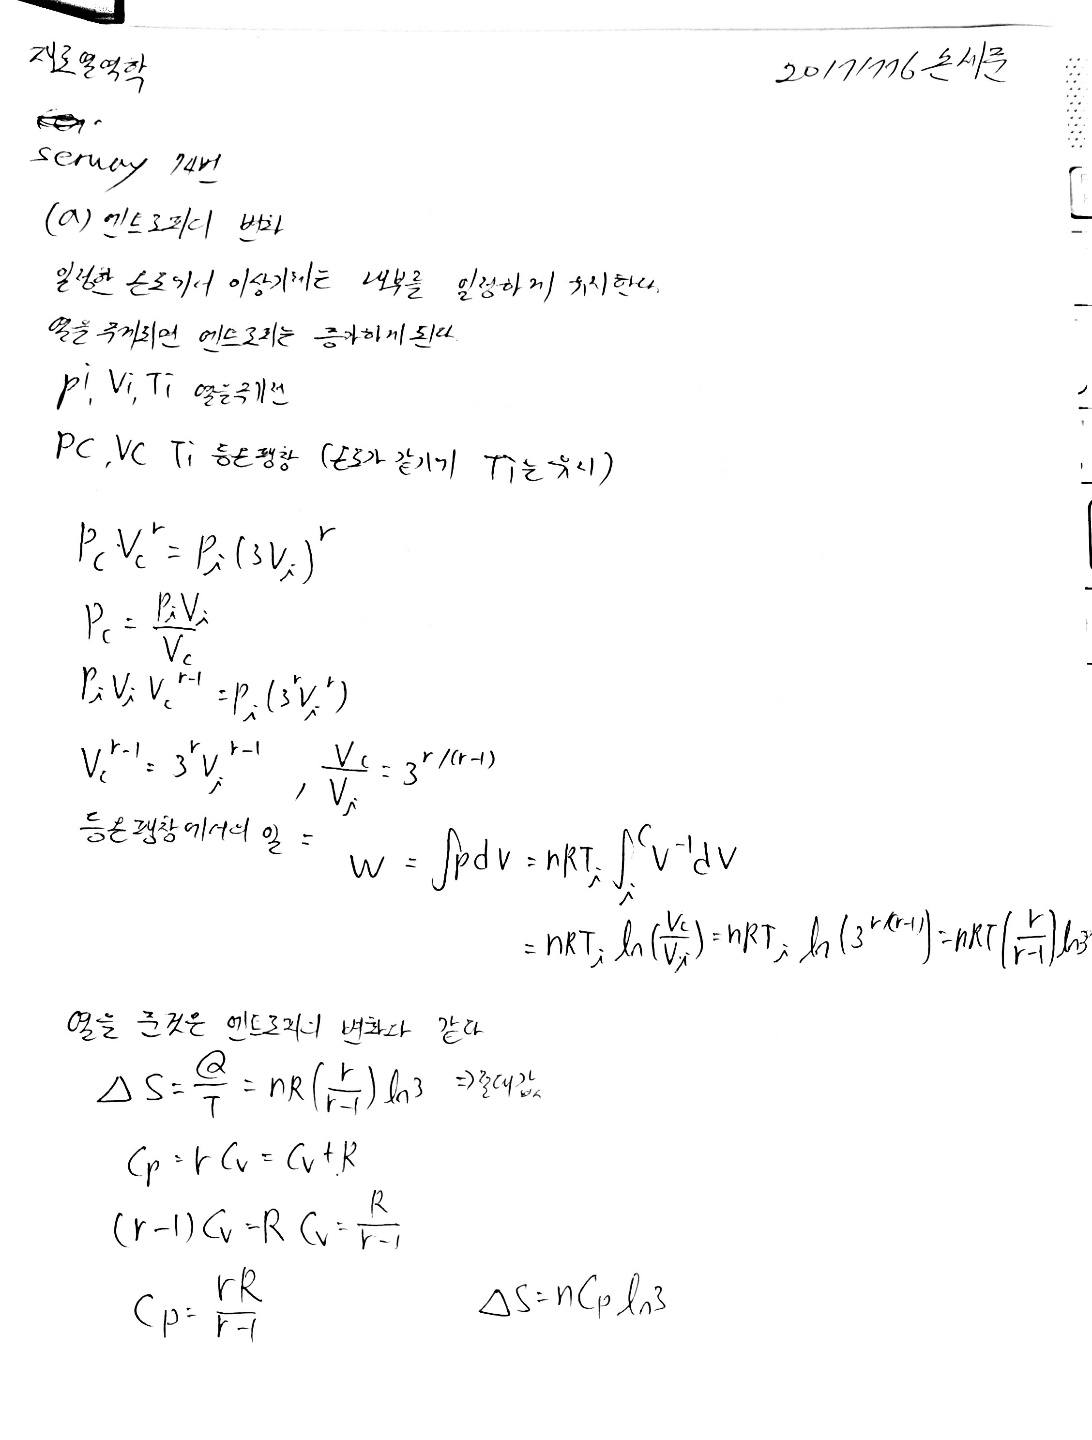 재료열역학
20171776 손세준
serway 74번
(a) 엔트로피의 변화
일정한 온도에서 이상기체는 내부를 일정하게 유지한다.
열을 주게되면 엔트로피는 증가하게 된다.
Pi, Vi, Ti 열을주기전
PC, VC Ti 등온팽창 (온도가 같기에 Ti는 유지)
P_c V_c^r = P_i (3V_i)^r
P_c = P_i V_i / V_c
P_i V_i V_c^{r-1} = P_i (3^r V_i^r)
V_c^{r-1} = 3^r V_i^{r-1} , V_c / V_i = 3^{r/(r-1)}
등온팽창에서의 일 = W = ∫pdv = nRT_i ∫_i^C V^{-1}dV
= nRT_i ln(V_c/V_i) = nRT_i ln(3^{r/(r-1)}) = nRT(r/(r-1)) ln3
열을 준것은 엔트로피의 변화와 같다
△S = Q/T = nR(r/(r-1)) ln3 ⇒절대값
Cp = r Cv = Cv + R
(r-1) Cv = R Cv = R/(r-1)
Cp = rR/(r-1) △S = nCp ln3